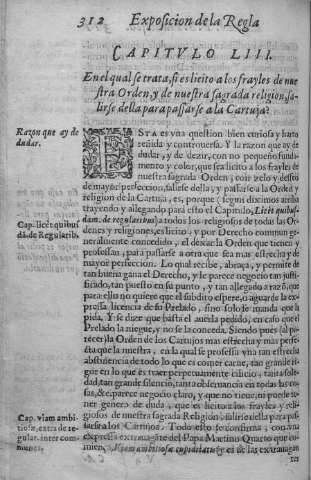 312 Exposicion de la Regla
CAPITVLO LIII.
En el qual se trata, si es licito a los frayles de nue
stra Orden, y de nuestra sagrada religion, sa-
lirse della para passarse a la Cartuja?
Razon que ay de
dudar.
ESTA es vna question bien curiosa y harto
reñida y controuersa. Y la razon que ay de
dudar, y de dezir, con no pequeño funda-
mento y color, que sea licito a los frayles de
nuestra sagrada Orden, con zelo y desseo
de mayor perfeccion, salirse della, y passarse a la Orden y
religion de la Cartuja, es, porque (segun diximos arriba
trayendo y allegando para esto el Capitulo, Licèt quibus-
dam. de regularibus) a todos los religiosos de todas las Or-
Cap. licèt quibus
dã. de Regularib.
denes y religiones, es licito, y por Derecho comun ge-
neralmente concedido, el dexar la Orden que tienen y
professan, para passarse a otra que sea mas estrecha y de
mayor perfeccion. Lo qual recibe, abraça, y permite de
tan buena gana el Derecho, y le parece negocio tan justi-
ficado, tan puesto en su punto, y tan allegado a razõ, que
para ello no quiere que el subdito espere, o aguarde la ex-
pressa licencia de su Prelado, sino solo se manda que la
pida. Y se dize que basta el auerla pedido, en caso que el
Prelado la niegue, y no se la conceda. Siendo pues (al pa-
recer) la Orden de los Cartujos mas estrecha y mas perfe-
cta que la nuestra, en la qual se professa vna tan estrecha
abstinencia de todo lo que es comer carne, tan grande ri-
gor en lo que es traer perpetuamente cilicio, tanta sole-
dad, tan grande silencio, tanta obseruancia en todas las co-
sas, & c. parece negocio claro, y que no tiene, ni puede te-
ner genero de duda, que es licito a los frayles y reli-
giosos de nuestra sagrada Religion, salirse della para pas-
sarse a los Cartujos. Todo esto se confirma, con vna
expressa extrauagãte del Papa Martino Quarto que co-
miença, Viam ambitiosæ cupiditatis, y es de las extrauagan
Cap. viam ambi-
tiosæ, extra de re-
gular. inter com-
munes.
tes